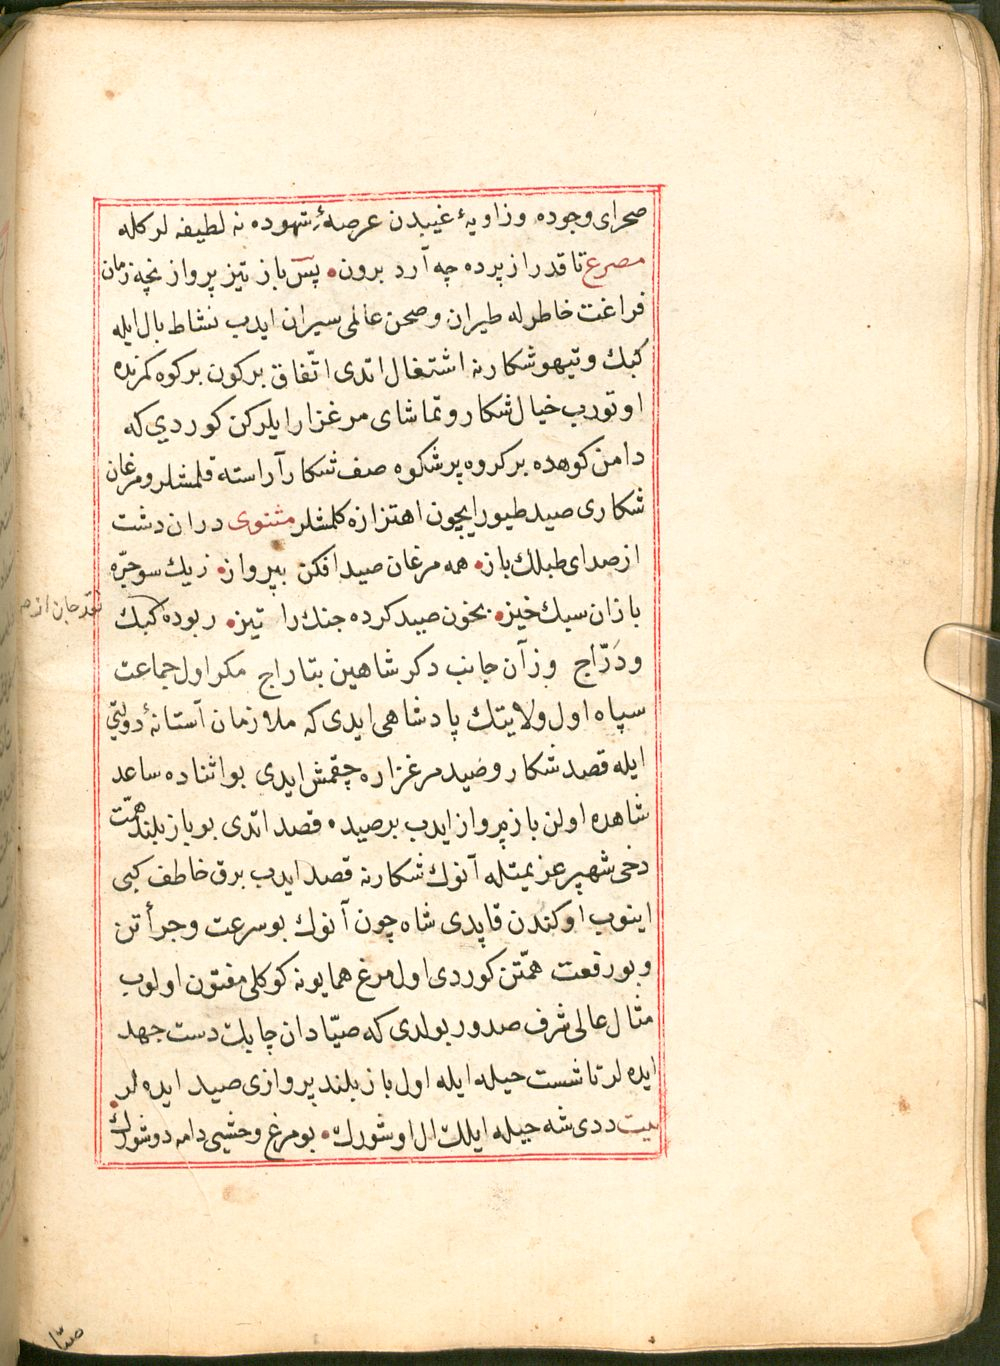 صحرای وجوده وزاویهٔ غیبدن عرصهٔ شهوده نه لطیفه لر کله
مصرع تا قدر از پرده چه آرد برون • پس باز تیز پرواز نچه زمان
فراغت خاطر له طیران وصحن عالمی سیران ایدب نشاط بال ایله
کبك وتیهو شکارنه اشتغال اتدی اتّفاق بر کون بر کوه کمرنده
اوتورب خیال شکار وتماشای مرغزار ایلرکن کوردي که
دامن کوهده بر کروه پر شکوه صف شکار آراسته قلمشلر ومرغان
شکاری صید طیور ایچون اهتزازه کلمشلر مثنوی دران دشت
از صدای طبلك باز • همه مرغان صید افکن بپرواز • زیك سو جرّه
بازان سبك خیز • بخون صید کرده جنك را تیز • ربوده کبك
نقد جان از
ودَرّاج وزآن جانب دکر شاهین بتاراج مکر اول جماعت
سپاه اول ولایتك پادشاهی ایدی که ملازمان آستانهٔ دولتی
ایله قصد شکار وصید مرغزاره چقمش ایدی بو اثناده ساعد
شاهده اولن باز پرواز ایدب بر صید • قصد اتدی بو باز بلند همّت
دخی شهپر عزیمتله آنوك شکارنه قصد ایدب برق خاطف کبی
اینوب اوکندن قاپدی شاه چون آنوك بو سرعت وجرأتن
وبو رفعت همّتن کوردی اول مرغ همایونه کوکلی مفتون اولوب
مثال عالی شرف صدور بولدی که صیّادان چابك دست جهد
ایده لر تا شست حیله ایله اول باز بلند پروازی صید ایده لر •
بیت ددی شه حیله ایلك ال اوشورك • بو مرغ وحشیی دامه دوشورك